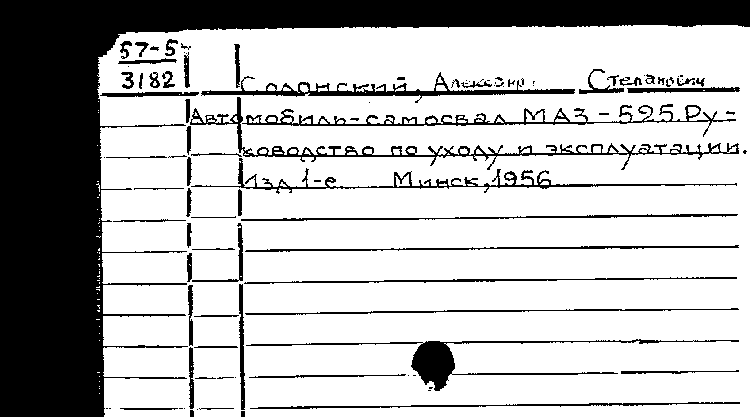 57-5
3182
Солонский, Александр Степанович
Автомобиль-самосвал МАЗ-525. Ру-
ководство по уходу и эксплуатации.
Изд. 1-е Минск, 1956